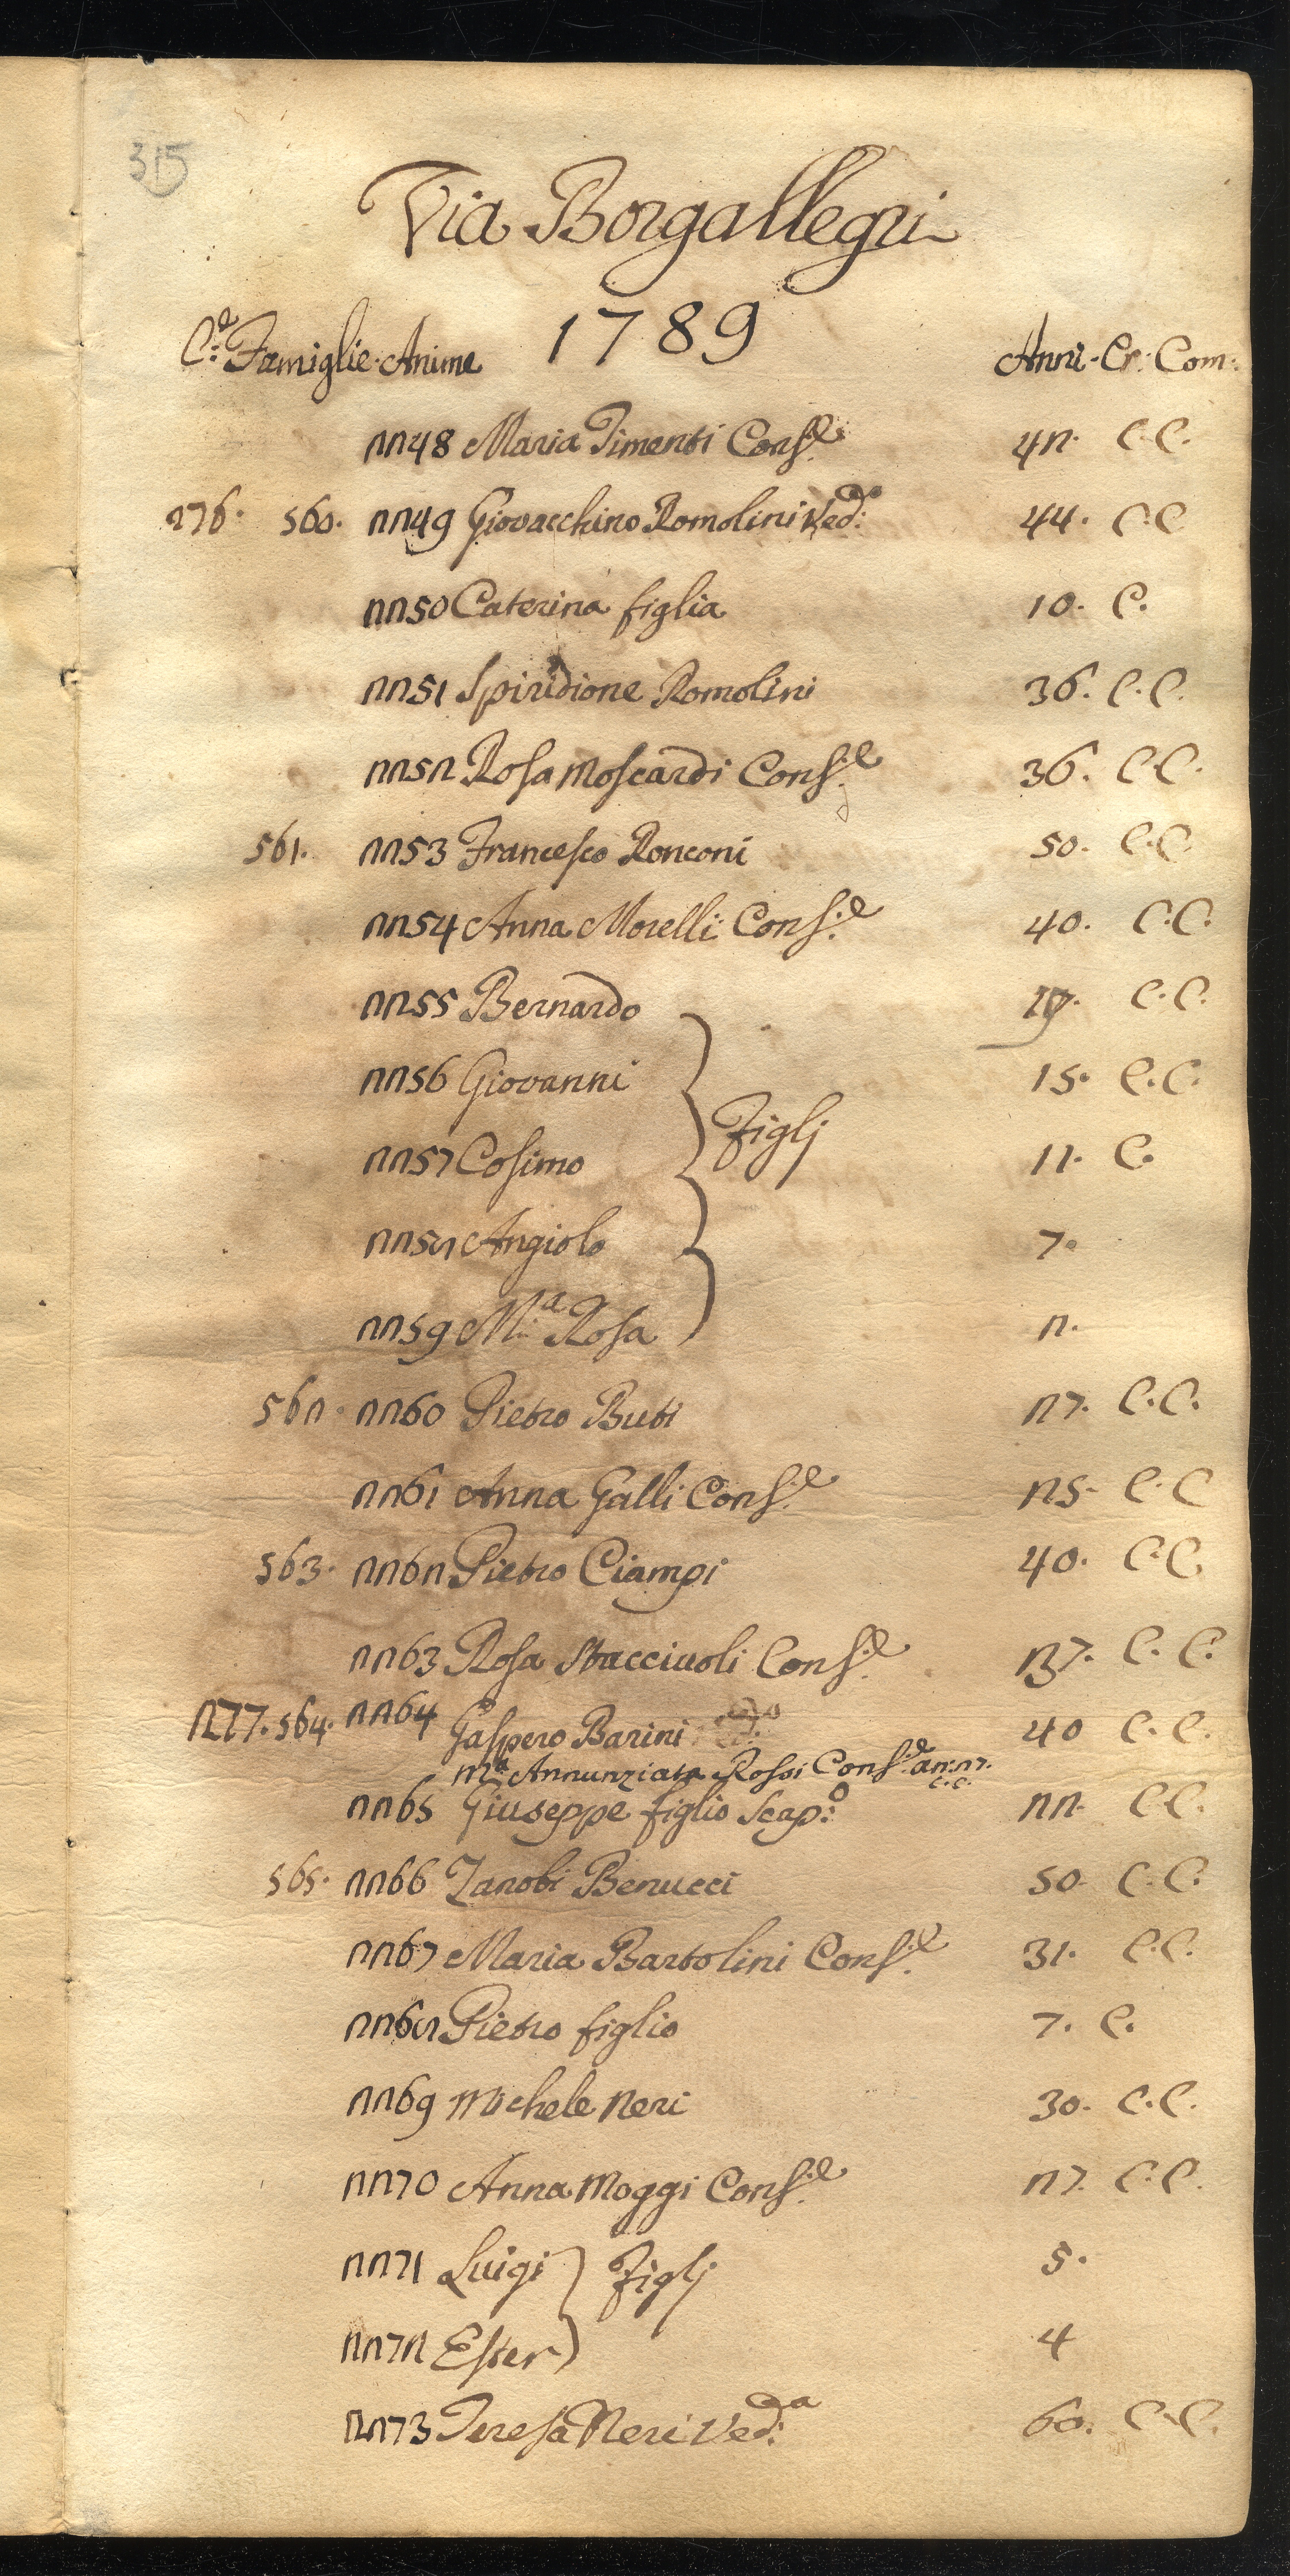 315
Via Borgallegri
1789
C:e Famiglie Anime Anni. Cr. Com:
2248 Maria Timenti Cons:e 42. C.C.
276. 560. 2249 Giovacchino Romolini Ved:o 44. C.C
2250 Caterina figlia 10. C.
2251 Spiridione Romolini 36. C.C.
2252 Rosa Moscardi Cons:e 36. C.C.
561. 2253 Francesco Ronconi 50. C.C.
2254 Anna Morelli Cons:e 40. C.C.
2255 Bernardo C.C.
2256 Giovanni 15. C.C.
Figlj
2257 Cosimo 11. C.
2258 Angiolo 7.
2259 M:a Rosa 2.
562. 2260 Pietro Buti 27. C.C.
2261 Anna Galli Cons:e 25. C.C
563. 2262 Pietro Ciampi 40. C.C.
2263 Rosa Stacciuoli Cons:e 37. C.C.
277. 564. 2264 Gaspero Barini 40 C.C.
M:a Annunziata Rossi Cons:e an: 27. C.C.
2265 Giuseppe figlio Scap:o 22. C.C.
565. 2266 Zanobi Benucci 50. C.C.
2267 Maria Bartolini Cons:e 31. C.C.
2268 Pietro figlio 7. C.
2269 Michele Neri 30. C.C.
2270 Anna Moggi Cons:e 27. C.C.
2271 Luigi Figlj 5.
2272 Ester 4
2273 Teresa Neri Ved:a 60. C.C.